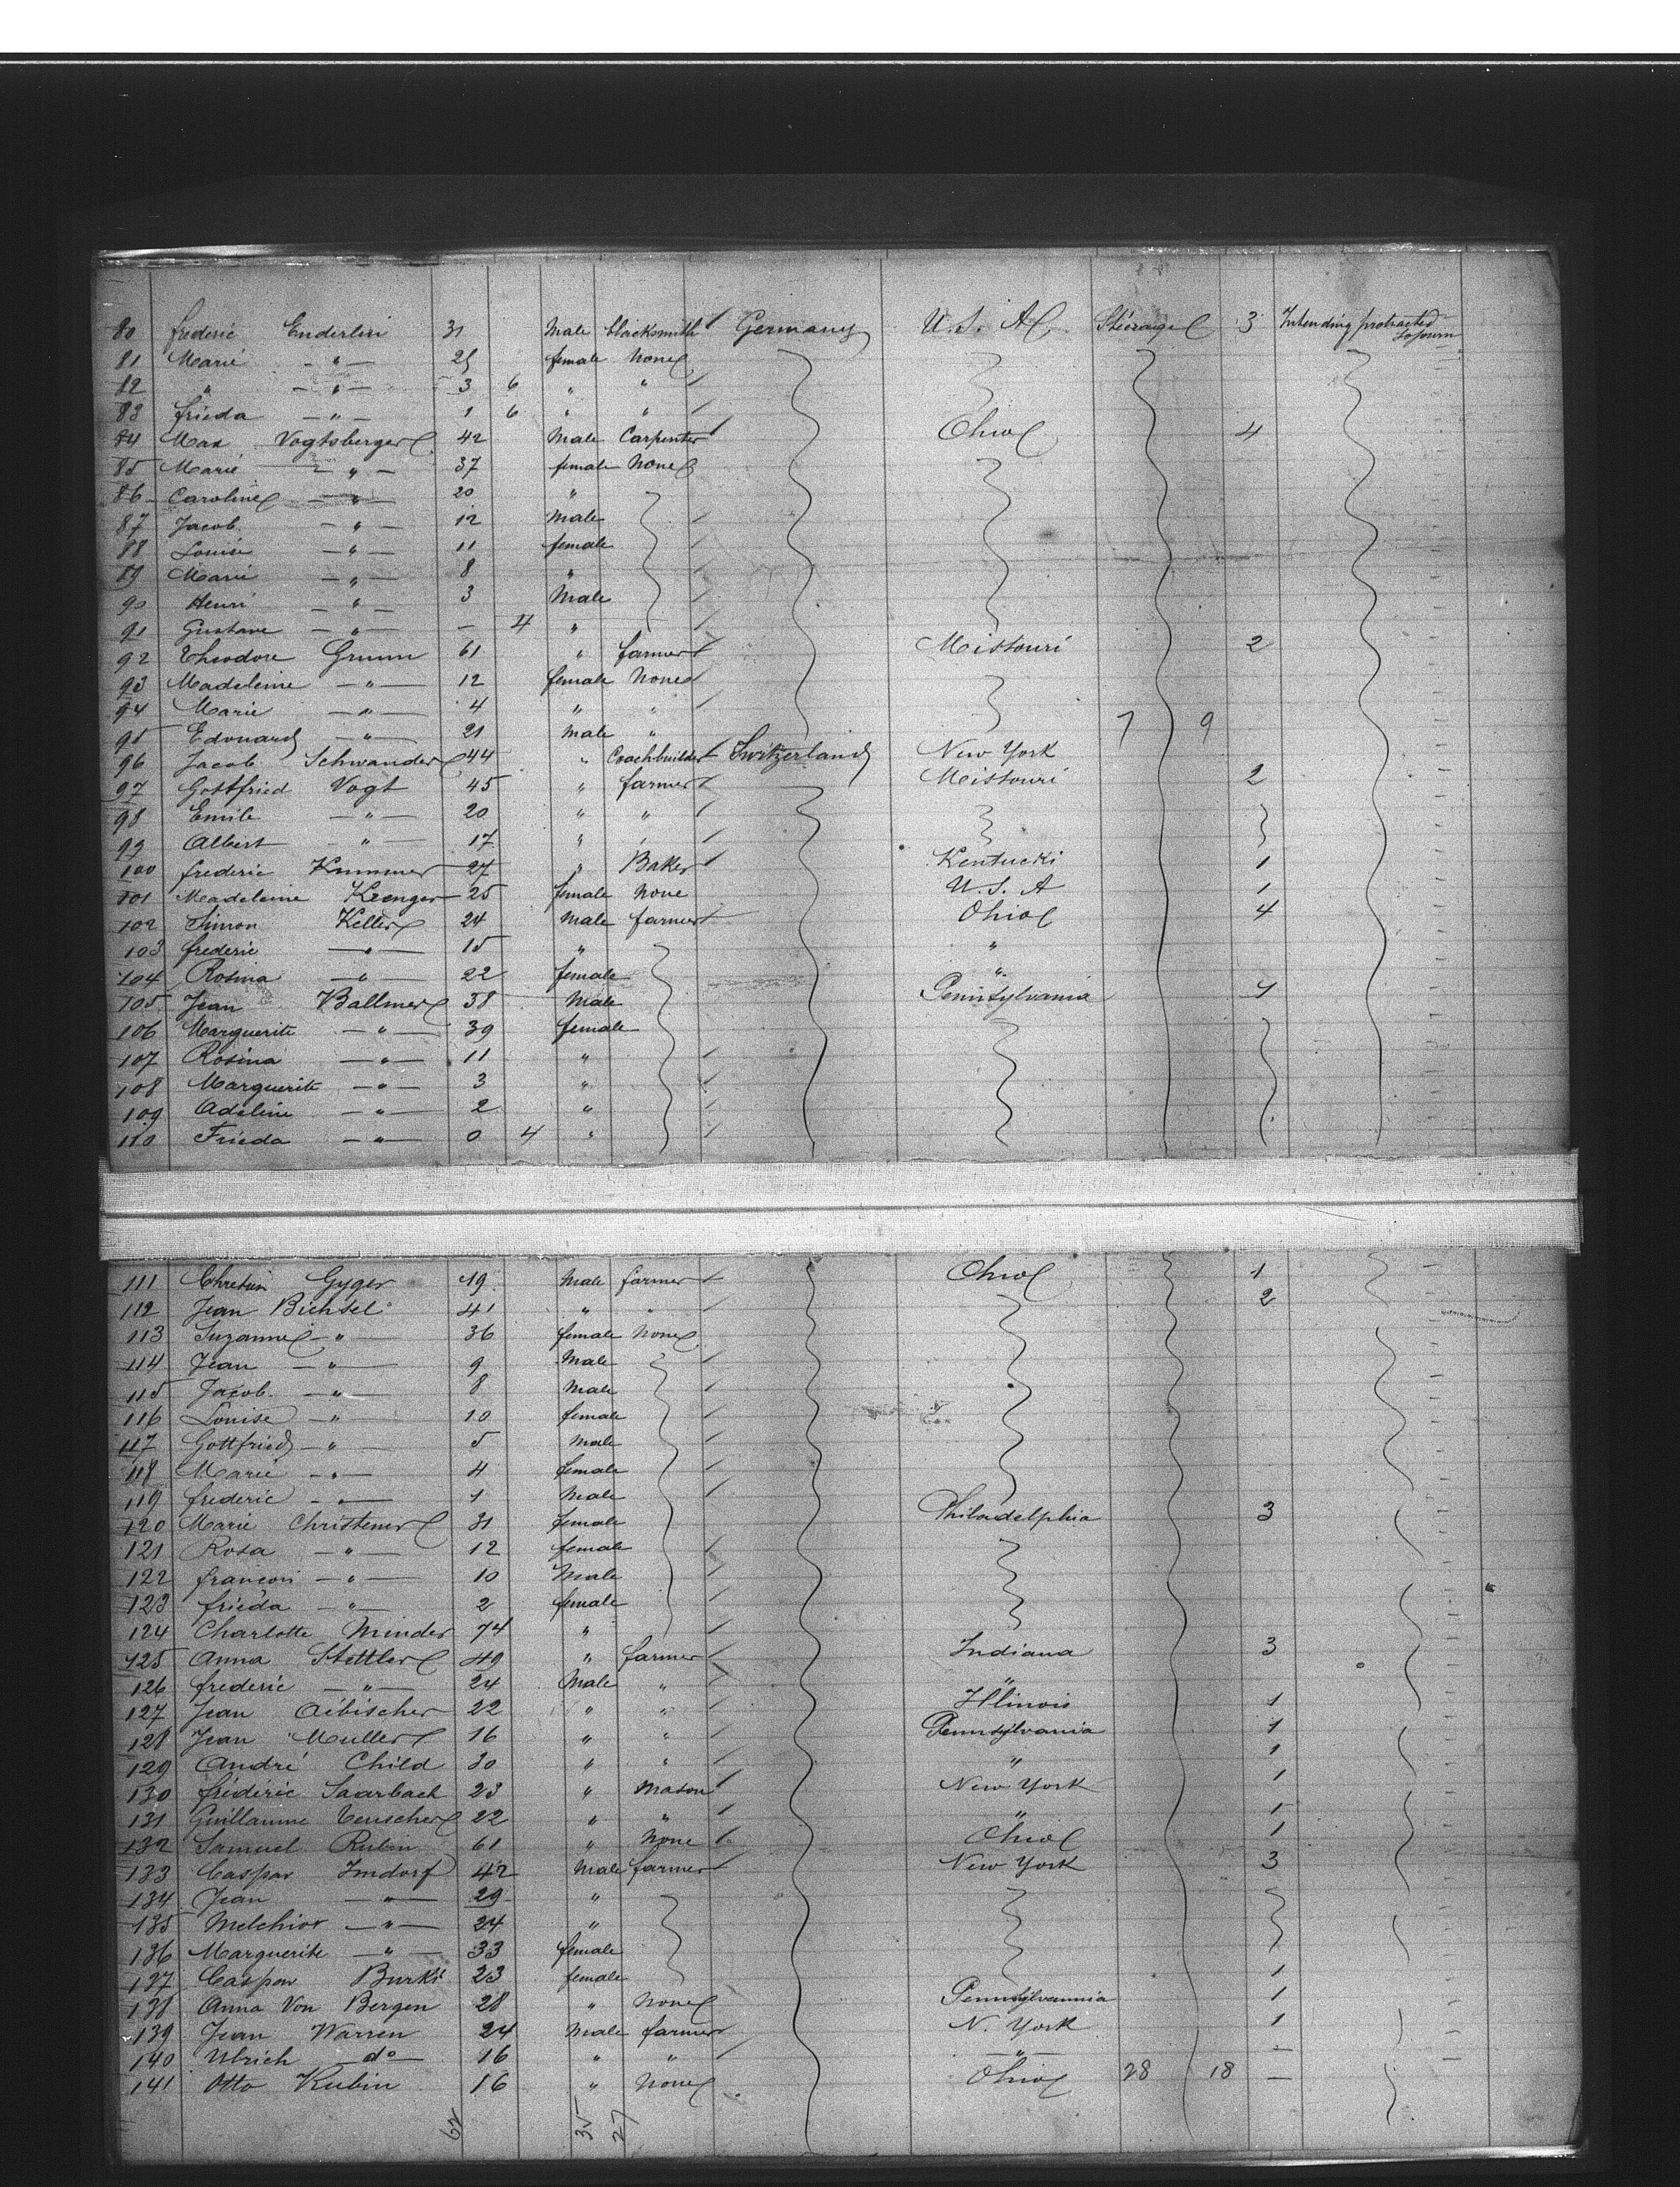 80 frederic Enderlin 31 Male blacksmith Germany U.S. A. Steerage 3 Intending protracted Sojourn
81 Marie — " — 25 female None
82 " — " — 3 6 " "
83 frieda — " — 1 6 " "
84 Max Vogtsberger 42 Male Carpenter Ohio 4
85 Marie — " — 37 female None
86 Caroline — " — 20 "
87 Jacob — " — 12 Male
88 Louise — " — 11 female
89 Marie — " — 8 "
90 Henri — " — 3 Male
91 Gustave — " — — 4 "
92 Theodore Grumm 61 " farmer Missouri 2
93 Madeleine — " — 12 female None
94 Marie — " — 4 " "
95 Edouard — " — 21 Male " 7 9
96 Jacob Schwander 44 " Coachbuilder Switzerland New York
97 Gottfried Vogt 45 " farmer Missouri 2
98 Emile — " — 20 " "
99 Albert — " — 17 " "
100 frederic Kummer 27 " Baker Kentucki 1
101 Madeleine Kenger 25 female None U.S. A 1
102 Simon Keller 24 Male farmer Ohio 4
103 frederic — " — 15 " "
104 Rosina — " — 22 female "
105 Jean Ballmer 38 Male Pennsylvania 4
106 Marguerite — " — 39 female
107 Rosina — " — 11 "
108 Marguerite — " — 3 "
109 Adeline — " — 2 "
110 Frieda — " — 0 4 "
111 Chretien Gyger 49 Male farmer Ohio 1
112 Jean Bichsel 41 " " 2
113 Suzanne — " — 36 female None
114 Jean — " — 9 Male
115 Jacob — " — 8 Male
116 Louise — " — 10 female
117 Gottfried — " — 5 Male
118 Marie — " — 4 female
119 frederic — " — 1 Male
120 Marie Christener 31 female Philadelphia 3
121 Rosa — " — 12 female
122 francois — " — 10 Male
123 frieda — " — 2 female
124 Charlotte Minder 74 "
125 Anna Stettler 49 " farmer Indiana 3
126 frederic — " — 24 Male " "
127 Jean Aebischer 22 " " Illinois 1
128 Jean Muller 16 " " Pennsylvania 1
129 André Child 30 " " " 1
130 fréderic Saarbach 23 " Mason New York 1
131 Guillaume Teuscher 22 " " " 1
132 Samuel Rubin 61 " None Ohio 1
133 Caspar Imdorf 42 Male farmer New York 3
134 Jean — " — 29 "
135 Melchior — " — 24 "
136 Marguerite — " — 33 female
137 Caspar Burki 23 female 1
138 Anna Von Bergen 28 " None Pennsylvannia 1
139 Jean Warren 24 Male farmer N. York 1
140 Ulrich — do — 16 " " — " — —
141 Otto Rubin 16 " None Ohio 28 18 —
62 35 27